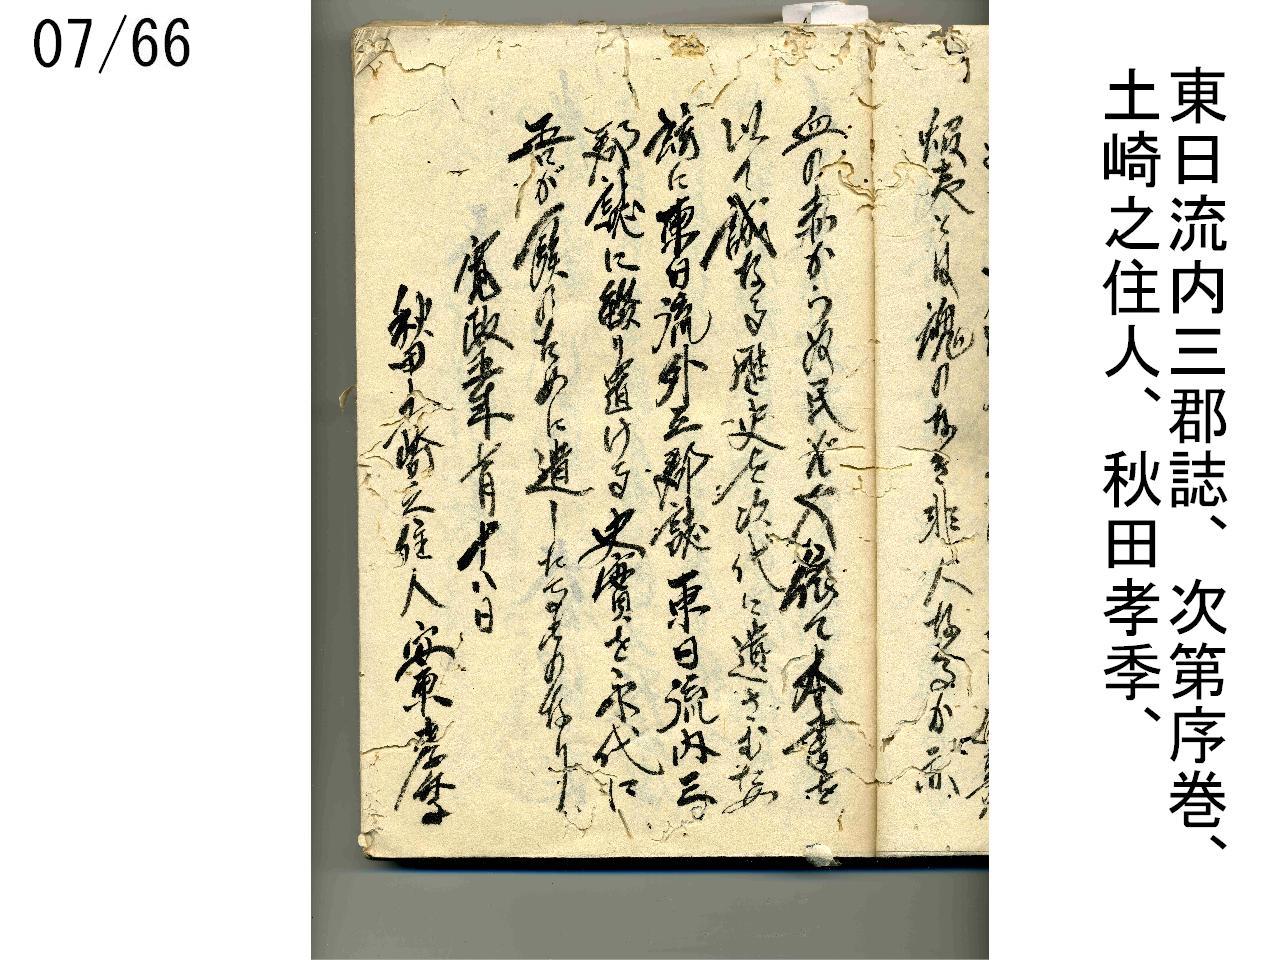 07/66
東日流内三郡誌、次第序巻、
土崎之住人、秋田孝季、
蝦夷とは魂のなき非人なるか亦
血の赤からぬ民が人 て本書を
以て誠なる歴史を次代に遺さむ
茲に東日流外三郡誌東日流内三
郡誌に綴り遺ける史實を永代に
吾が一族のために遺したるものなり
寛政五年七月十八日
秋田土崎之住人安東孝季